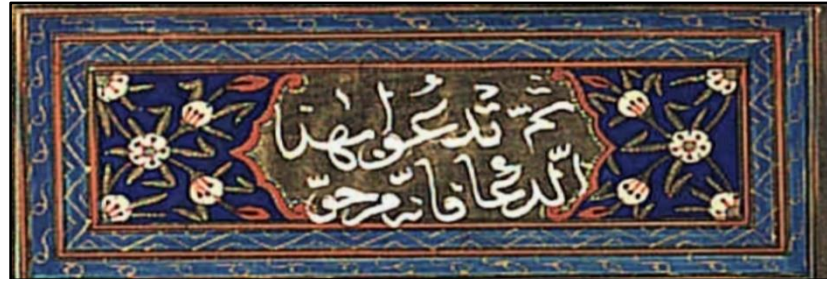 ثمّ تدعوا بهذا
الدعا فانّه مرجوّ